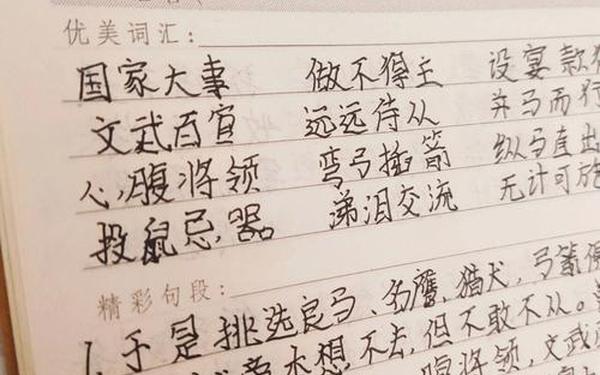 优美词汇：
国家大事 做不得主 设宴款
文武百宣 远远侍从 并马而行
心腹将领 弯弓插箭 纵马直出
投鼠忌器 涕泪交流 无计可施
精彩句段：
1.于是挑选良马、名鹰，猎犬，弓箭
本想，不去，但不敢不从。
腹将领，文武